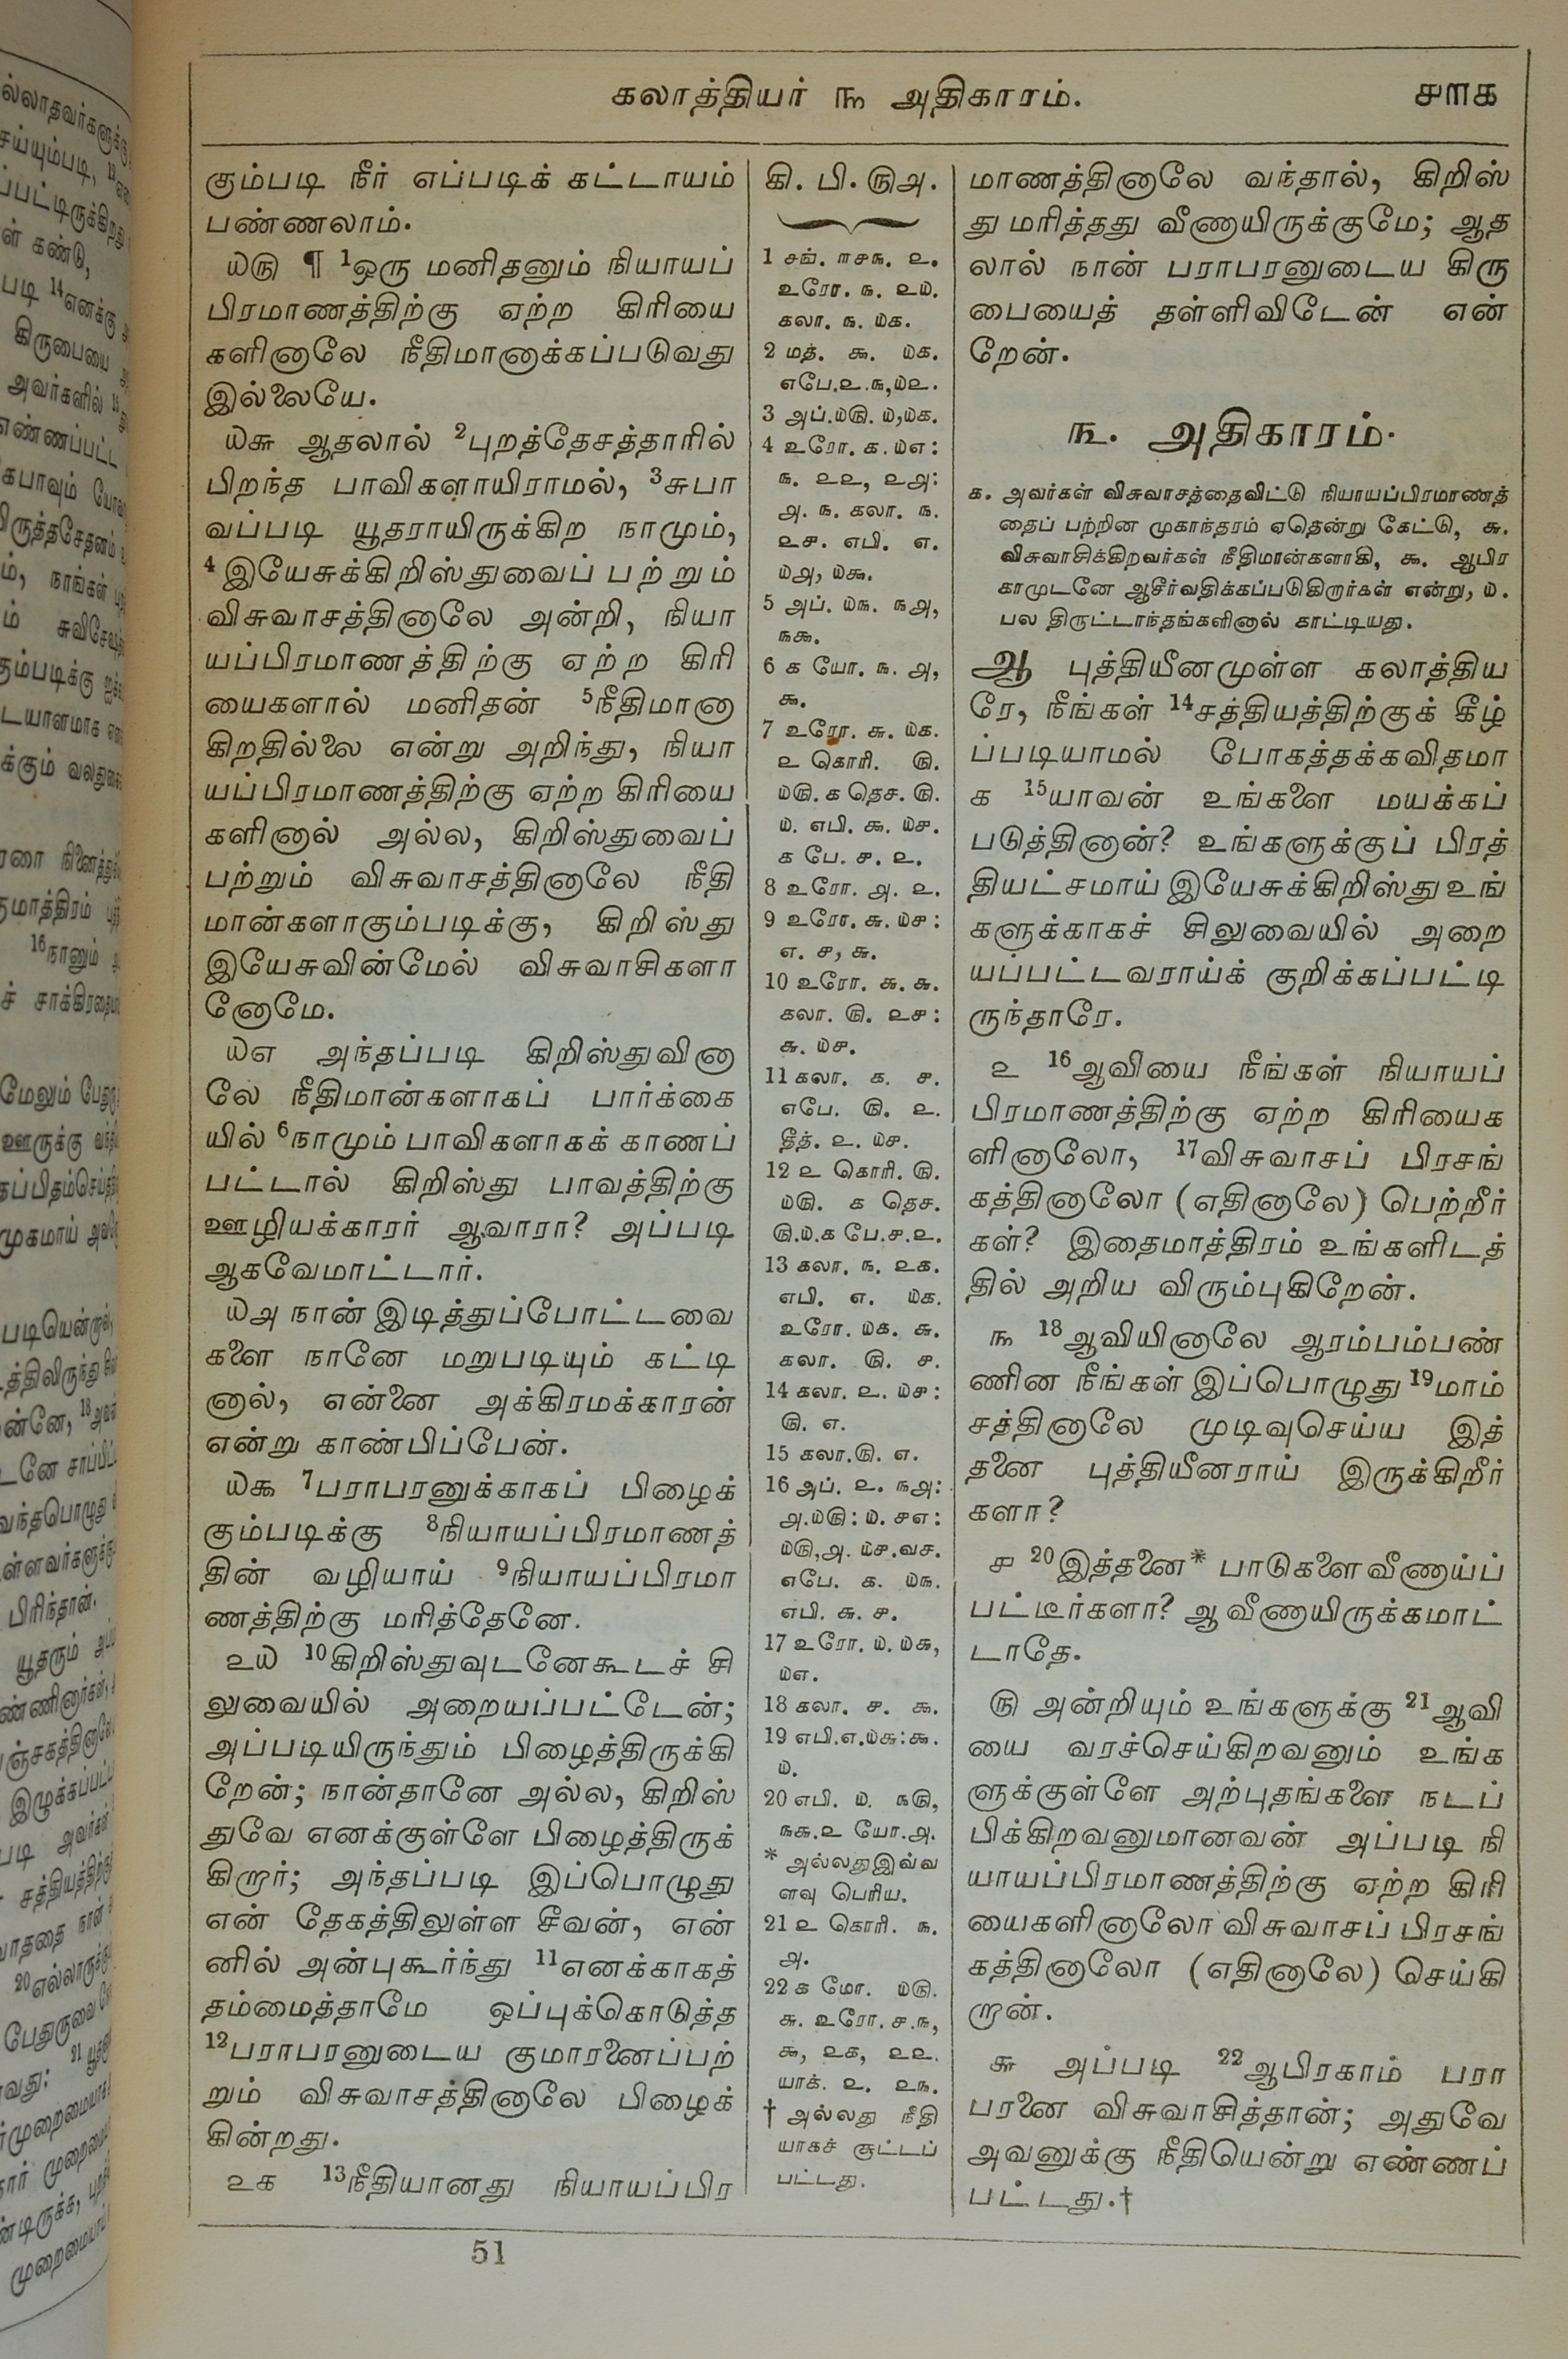 கலாத்தியர் ௩ அதிகாரம்.
௪௱௧
கும்படி நீர் எப்படிக் கட்டாயம்
பண்ணலாம்.
௰௫ ¶ 1ஒரு மனிதனும் நியாயப்
பிரமாணத்திற்கு ஏற்ற கிரியை
களினாலே நீதிமானாக்கப்படுவது
இல்லையே.
௰௬ ஆதலால் 2புறத்தேசத்தாரில்
பிறந்த பாவிகளாயிராமல், 3சுபா
வப்படி யூதராயிருக்கிற நாமும்,
4இயேசுக்கிறிஸ்துவைப் பற்றும்
விசுவாசத்தினாலே அன்றி, நியா
யப்பிரமாணத்திற்கு ஏற்ற கிரி
யைகளால் மனிதன் 5நீதிமானா
கிறதில்லை என்று அறிந்து, நியா
யப்பிரமாணத்திற்கு ஏற்ற கிரியை
களினால் அல்ல, கிறிஸ்துவைப்
பற்றும் விசுவாசத்தினாலே நீதி
மான்களாகும்படிக்கு, கிறிஸ்து
இயேசுவின்மேல் விசுவாசிகளா
னோமே.
௰௭ அந்தப்படி கிறிஸ்துவினா
லே நீதிமான்களாகப் பார்க்கை
யில் 6நாமும் பாவிகளாகக் காணப்
பட்டால் கிறிஸ்து பாவத்திற்கு
ஊழியக்காரர் ஆவாரா? அப்படி
ஆகவேமாட்டார்.
௰௮ நான் இடித்துப்போட்டவை
களை நானே மறுபடியும் கட்டி
னால், என்னை அக்கிரமக்காரன்
என்று காண்பிப்பேன்.
௰௯ 7பராபரனுக்காகப் பிழைக்
கும்படிக்கு 8நியாயப்பிரமாணத்
தின் வழியாய் 9நியாயப்பிரமா
ணத்திற்கு மரித்தேனே.
௨௰ 10கிறிஸ்துவுடனேகூடச் சி
லுவையில் அறையப்பட்டேன்;
அப்படியிருந்தும் பிழைத்திருக்கி
றேன்; நான்தானே அல்ல, கிறிஸ்
துவே எனக்குள்ளே பிழைத்திருக்
கிறார்; அந்தப்படி இப்பொழுது
என் தேகத்திலுள்ள சீவன், என்
னில் அன்புகூர்ந்து 11எனக்காகத்
தம்மைத்தாமே ஒப்புக்கொடுத்த
12பராபரனுடைய குமாரனைப்பற்
றும் விசுவாசத்தினாலே பிழைக்
கின்றது.
௨௧ 13நீதியானது நியாயப்பிர
கி. பி. ௫௮.
1 சங். ௱௪௩. ௨.
உரோ. ௩. ௨௰.
கலா. ௩. ௰௧.
2 மத். ௯. ௰௧.
எபே.௨.௩,௰௨.
3 அப்.௰௫. ௰,௰௧.
4 உரோ. ௧. ௰௭:
௩. ௨௨, ௨௮:
௮. ௩. கலா. ௩.
௨௪. எபி. ௭.
௰௮, ௰௯.
5 அப். ௰௩. ௩௮,
௩௯.
6 ௧ யோ. ௩. ௮,
௯.
7 உரோ. ௬. ௰௧.
௨ கொரி. ௫.
௰௫. ௧ தெச. ௫.
௰. எபி. ௯. ௰௪.
௧ பே. ௪. ௨.
8 உரோ. ௮. ௨.
9 உரோ. ௬. ௰௪:
௭. ௪, ௬.
10 உரோ. ௬. ௬.
கலா. ௫. ௨௪:
௬. ௰௪.
11 கலா. ௧. ௪.
எபே. ௫. ௨.
தீத். ௨. ௰௪.
12 ௨ கொரி. ௫.
௰௫. ௧ தெச.
௫.௰.௧ பே.௪.௨.
13 கலா. ௩. ௨௧.
எபி. ௭. ௰௧.
உரோ. ௰௧. ௬.
கலா. ௫. ௪.
14 கலா. ௨. ௰௪:
௫. ௭.
15 கலா.௫. ௭.
16 அப். ௨. ௩௮:
௮.௰௫: ௰. ௪௭:
௰௫,௮. ௰௪.வச.
எபே. ௧. ௰௩.
எபி. ௬. ௪.
17 உரோ. ௰. ௰௬,
௰௭.
18 கலா. ௪. ௯.
19 எபி.௭.௰௬:௯.
௰.
20 எபி. ௰. ௩௫,
௩௬.௨ யோ.௮.
* அல்லதுஇவ்வ
ளவு பெரிய.
21 ௨ கொரி. ௩.
௮.
22 ௧ மோ. ௰௫.
௬. உரோ. ௪.௩,
௯, ௨௧, ௨௨.
யாக். ௨. ௨௩.
† அல்லது நீதி
யாகச் சூட்டப்
பட்டது.
மாணத்தினாலே வந்தால், கிறிஸ்
து மரித்தது வீணாயிருக்குமே; ஆத
லால் நான் பராபரனுடைய கிரு
பையைத் தள்ளிவிடேன் என்
றேன்.
௩. அதிகாரம்.
௧. அவர்கள் விசுவாசத்தைவிட்டு நியாயப்பிரமாணத்
தைப் பற்றின முகாந்தரம் ஏதென்று கேட்டு, ௬.
விசுவாசிக்கிறவர்கள் நீதிமான்களாகி, ௯. ஆபிர
காமுடனே ஆசீர்வதிக்கப்படுகிறார்கள் என்று, ௰.
பல திருட்டாந்தங்களினால் காட்டியது.
ஆ புத்தியீனமுள்ள கலாத்திய
ரே, நீங்கள் 14சத்தியத்திற்குக் கீழ்
ப்படியாமல் போகத்தக்கவிதமா
க 15யாவன் உங்களை மயக்கப்
படுத்தினான்? உங்களுக்குப் பிரத்
தியட்சமாய் இயேசுக்கிறிஸ்து உங்
களுக்காகச் சிலுவையில் அறை
யப்பட்டவராய்க் குறிக்கப்பட்டி
ருந்தாரே.
௨ 16ஆவியை நீங்கள் நியாயப்
பிரமாணத்திற்கு ஏற்ற கிரியைக
ளினாலோ, 17விசுவாசப் பிரசங்
கத்தினாலோ (எதினாலே) பெற்றீர்
கள்? இதைமாத்திரம் உங்களிடத்
தில் அறிய விரும்புகிறேன்.
௩ 18ஆவியினாலே ஆரம்பம்பண்
ணின நீங்கள் இப்பொழுது 19மாம்
சத்தினாலே முடிவுசெய்ய இத்
தனை புத்தியீனராய் இருக்கிறீர்
களா?
௪ 20இத்தனை* பாடுகளைவீணாய்ப்
பட்டீர்களா? ஆ வீணாயிருக்கமாட்
டாதே.
௫ அன்றியும் உங்களுக்கு 21ஆவி
யை வரச்செய்கிறவனும் உங்க
ளுக்குள்ளே அற்புதங்களை நடப்
பிக்கிறவனுமானவன் அப்படி நி
யாயப்பிரமாணத்திற்கு ஏற்ற கிரி
யைகளினாலோ விசுவாசப் பிரசங்
கத்தினாலோ (எதினாலே) செய்கி
றான்.
௬ அப்படி 22ஆபிரகாம் பரா
பரனை விசுவாசித்தான்; அதுவே
அவனுக்கு நீதியென்று எண்ணப்
பட்டது.†
51